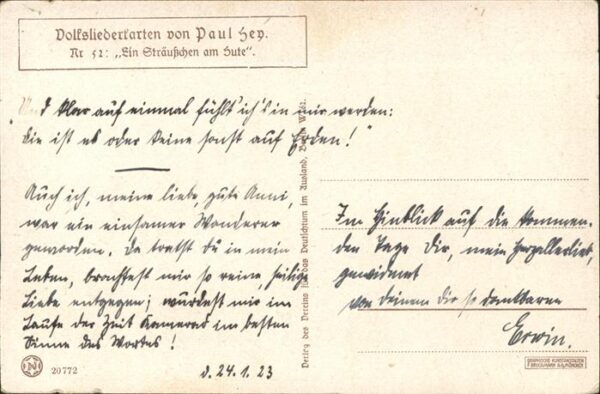 Volksliederkarten von Paul Hey.
Nr 52: „Ein Sträußchen am Hute".
„Und klar auf einmal fühlt' ich's in mir werden:
die ist es oder keine sonst auf Erden!"
Auch ich, meine liebe, gute Anni,
war ein einsamer Wanderer
geworden. Da tratst du in mein
Leben, brachtest mir so reine, heilige
Liebe entgegen; wurdest mir im
Laufe der Zeit Kamerad im besten
Sinne des Wortes!
d. 24.1.23
20772
Verlag des Vereins für das Deutschtum im Ausland, Berlin
Im Hinblick auf die kommen-
den Tage Dir, mein Herzallerlieb,
gewidmet
von deinem dir so dankbaren
Erwin.
GRAPHISCHE KUNSTANSTALTEN
F. BRUCKMANN A.G. MÜNCHEN